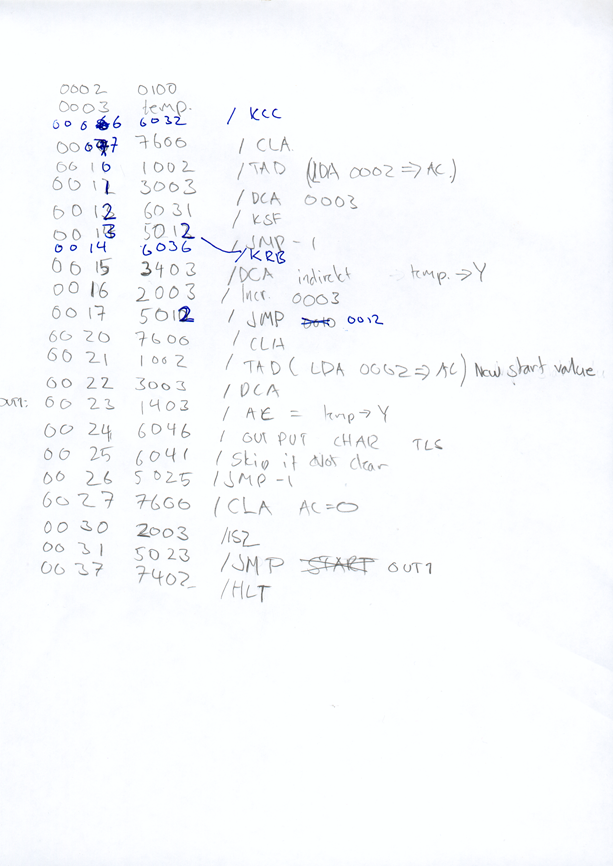 0002 0100
0003 temp.
0006 6032 / KCC
0007 7600 / CLA
0010 1002 / TAD (LDA 0002 => AC.)
0011 3003 / DCA 0003
0012 6031 / KSF
0013 5012 / JMP - 1
0014 6036 / KRB
0015 3403 /DCA indirekt temp. → Y
0016 2003 / Incr. 0003
0017 5012 / JMP 0012
0020 7600 / CLA
0021 1002 / TAD ( LDA 0002 => AC) New start value
0022 3003 / DCA
OUT1: 0023 1403 / AC = temp → Y
0024 6046 / OUTPUT CHAR TLS
0025 6041 / Skip if not clear
0026 5025 / JMP -1
0027 7600 / CLA AC=0
0030 2003 /ISZ
0031 5023 /JMP START OUT1
0037 7402 /HLT